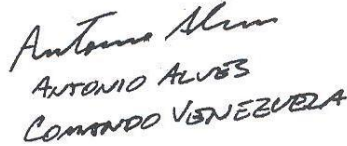 Antonio Alves
ANTONIO ALVES
COMANDO VENEZUELA